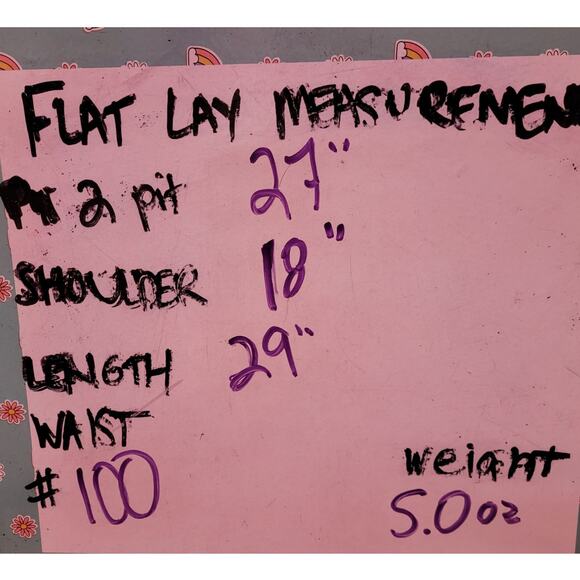 FLAT LAY MEASUREMEN
Pit 2 pit 27"
SHOULDER 18"
LENGTH 29"
WAIST
# 100
weight
5.0 oz